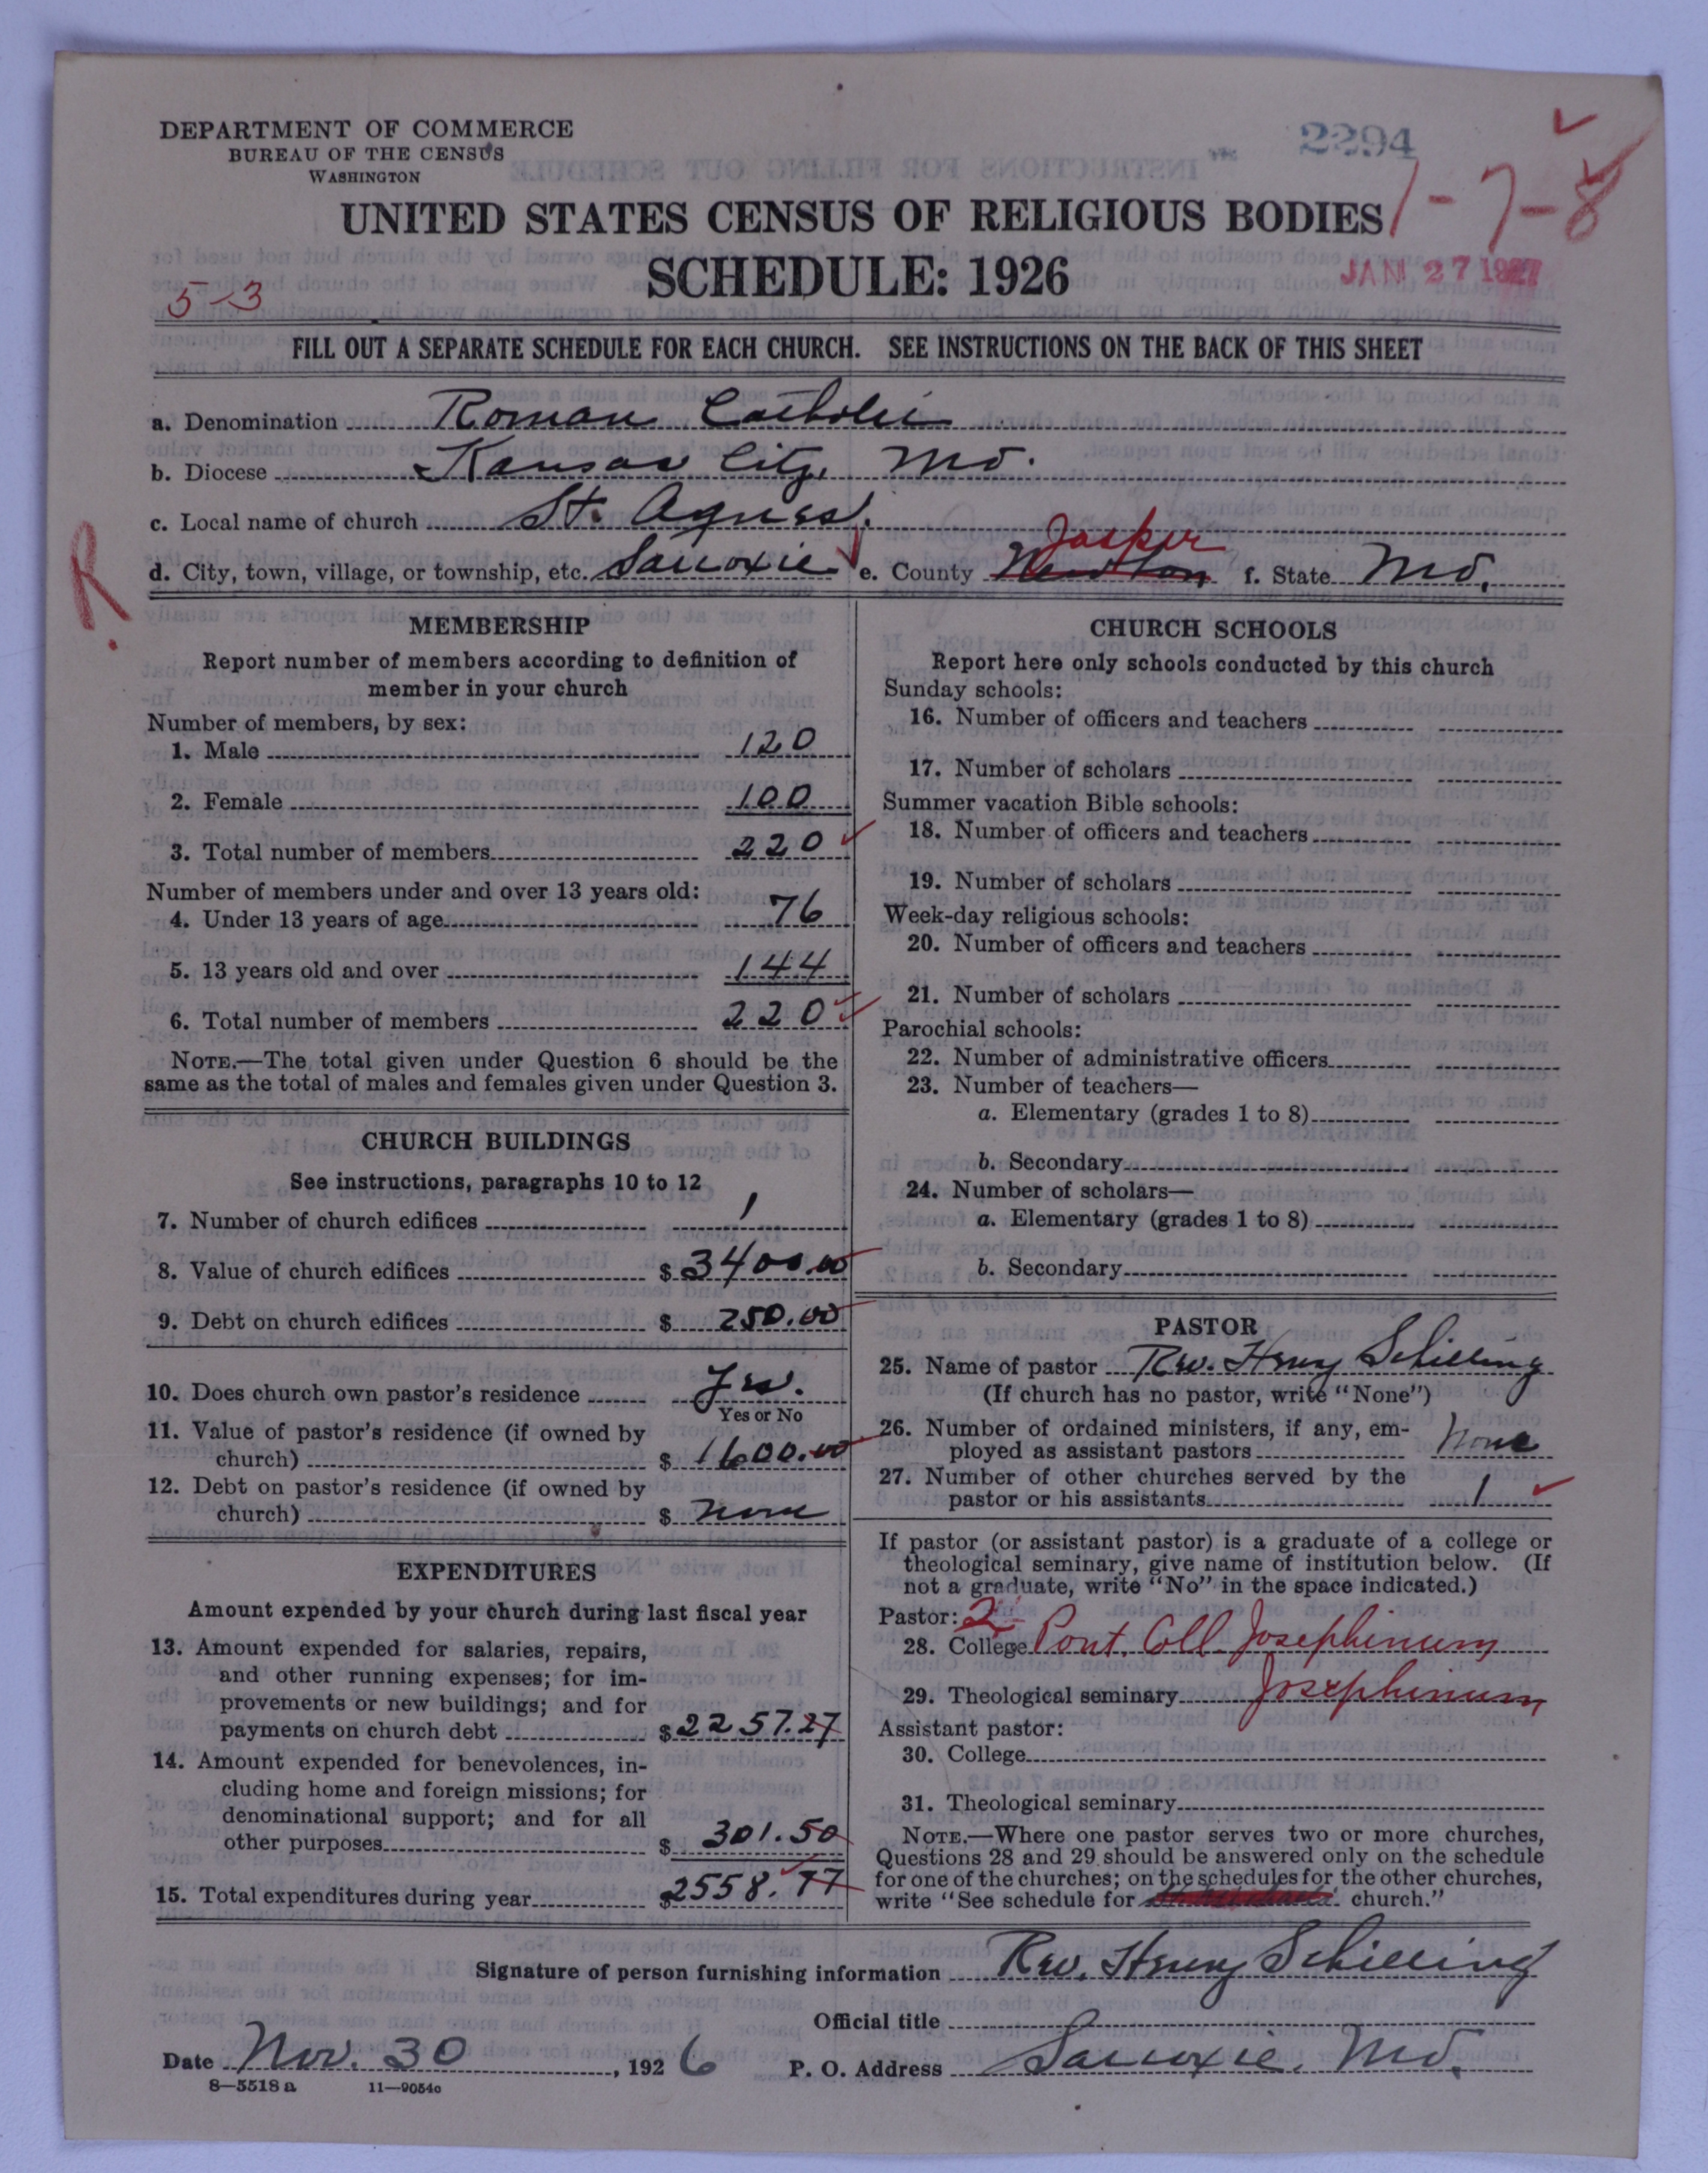 DEPARTMENT OF COMMERCE
BUREAU OF THE CENSUS
WASHINGTON
2294
1-7-8
UNITED STATES CENSUS OF RELIGIOUS BODIES
SCHEDULE: 1926
JAN 27 1927
5-3
FILL OUT A SEPARATE SCHEDULE FOR EACH CHURCH. SEE INSTRUCTIONS ON THE BACK OF THIS SHEET
a. Denomination Roman Catholic
b. Diocese Kansas City, Mo.
c. Local name of church St. Agnes.
R
d. City, town, village, or township, etc. Sarcoxie e. County Newton Jasper f. State Mo.
MEMBERSHIP
Report number of members according to definition of
member in your church
Number of members, by sex:
1. Male 120
2. Female 100
3. Total number of members 220
Number of members under and over 13 years old:
4. Under 13 years of age 76
5. 13 years old and over 144
6. Total number of members 220
NOTE.—The total given under Question 6 should be the
same as the total of males and females given under Question 3.
CHURCH BUILDINGS
See instructions, paragraphs 10 to 12
7. Number of church edifices 1
8. Value of church edifices $ 3400.00
9. Debt on church edifices $ 250.00
10. Does church own pastor's residence Yes.
Yes or No
11. Value of pastor's residence (if owned by
church) $ 1600.00
12. Debt on pastor's residence (if owned by
church) $ none
EXPENDITURES
Amount expended by your church during last fiscal year
13. Amount expended for salaries, repairs,
and other running expenses; for im-
provements or new buildings; and for
payments on church debt $ 2257.27
14. Amount expended for benevolences, in-
cluding home and foreign missions; for
denominational support; and for all
other purposes $ 301.50
15. Total expenditures during year $ 2558.77
CHURCH SCHOOLS
Report here only schools conducted by this church
Sunday schools:
16. Number of officers and teachers
17. Number of scholars
Summer vacation Bible schools:
18. Number of officers and teachers
19. Number of scholars
Week-day religious schools:
20. Number of officers and teachers
21. Number of scholars
Parochial schools:
22. Number of administrative officers
23. Number of teachers—
a. Elementary (grades 1 to 8)
b. Secondary
24. Number of scholars—
a. Elementary (grades 1 to 8)
b. Secondary
PASTOR
25. Name of pastor Rev. Henry Schilling
(If church has no pastor, write "None")
26. Number of ordained ministers, if any, em-
ployed as assistant pastors None
27. Number of other churches served by the
pastor or his assistants 1
If pastor (or assistant pastor) is a graduate of a college or
theological seminary, give name of institution below. (If
not a graduate, write "No" in the space indicated.)
Pastor: 2
28. College Pont. Coll. Josephinum
29. Theological seminary Josephinum
Assistant pastor:
30. College
31. Theological seminary
NOTE.—Where one pastor serves two or more churches,
Questions 28 and 29 should be answered only on the schedule
for one of the churches; on the schedules for the other churches,
write "See schedule for church."
Signature of person furnishing information Rev. Henry Schilling
Official title
Date Nov. 30, 1926 P. O. Address Sarcoxie, Mo.
8—5518 a 11—9054c